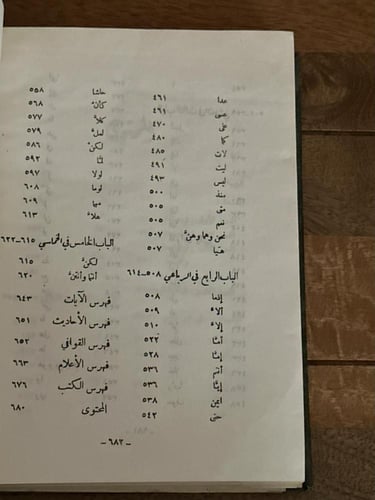 عدا ٤٦١
عسى ٤٦١
علّ ٤٧٠
كما ٤٨٥
لات ٤٨٥
ليت ٤٩١
ليس ٤٩٣
منذ ٥٠٠
متى ٥٠٥
نعم ٥٠٥
نحن وهما وهنّ ٥٠٧
هيا ٥٠٧
الباب الرابع في الرباعي ٥٠٨-٦١٤
إذما ٥٠٨
ألاّ ٥٠٩
إلاّ ٥١٠
أمّا ٥٢٢
إمّا ٥٢٨
أنتم ٥٣٦
إيّا ٥٣٦
ايمن ٥٣٨
حتى ٥٤٢
حاشا ٥٥٨
كأنّ ٥٦٨
كلاّ ٥٧٧
لعلّ ٥٧٩
لكن ٥٨٦
لمّا ٥٩٢
لولا ٥٩٧
لوما ٦٠٨
مهما ٦٠٩
هلاّ ٦١٣
الباب الخامس في الخماسي ٦١٥-٦٢٢
لكنّ ٦١٥
أنتما وأنتنّ ٦٢٠
فهرس الآيات ٦٤٣
فهرس الأحاديث ٦٥١
فهرس القوافي ٦٥٢
فهرس الأعلام ٦٦٣
فهرس الكتب ٦٧٦
المحتوى ٦٨٠
-٦٨٢-